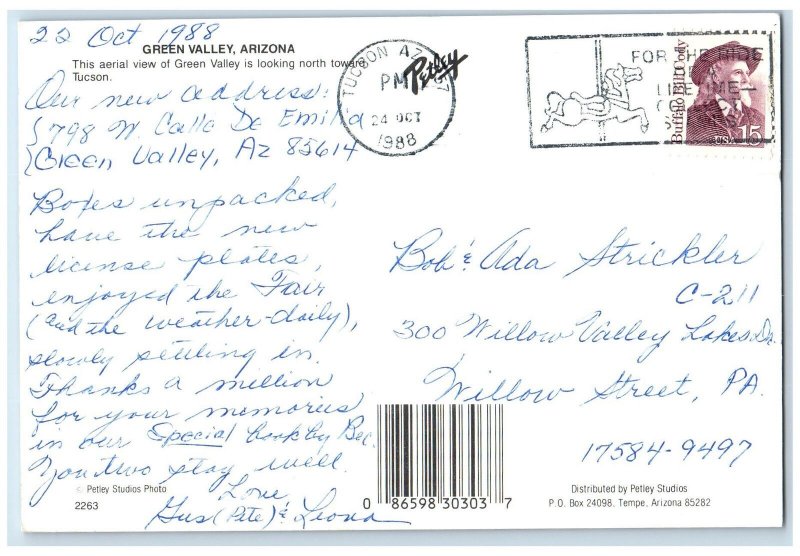 22 Oct 1988
GREEN VALLEY, ARIZONA
This aerial view of Green Valley is looking north toward
Tucson.
Our new address:
5798 W. Calla De Emilia
Green Valley, Az 85614
Boxes unpacked,
have the new
license plates,
enjoyed the Fair
(and the weather-daily),
slowly settling in.
Thanks a million
for your memories
in our Special book by Bec.
You two stay well.
Love,
Gus (Pete) & Leona
© Petley Studios Photo
2263
Petley
TUCSON AZ 857
PM
24 OCT
1988
FOR THE RIDE
LIFETIME—
Buffalo Bill Cody
USA 15
Bob & Ada Strickler
C-211
300 Willow Valley Lakes Dr.
Willow Street, PA.
17584-9497
0 86598 30303 7
Distributed by Petley Studios
P.O. Box 24098, Tempe, Arizona 85282